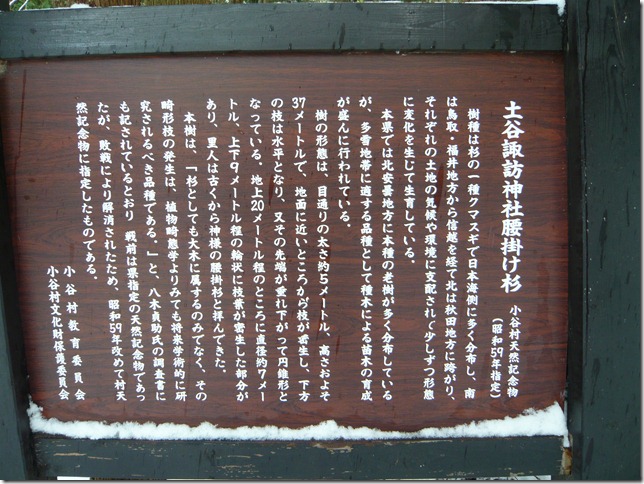 土谷諏訪神社腰掛け杉
小谷村天然記念物
(昭和59年指定)
樹種は杉の一種クマスギで日本海側に多く分布し、南
は鳥取・福井地方から信越を経て北は秋田地方に跨がり、
それぞれの土地の気候や環境に支配されて少しずつ形態
に変化を生じて生育している。
本県では北安曇地方に本種の老樹が多く分布している
が、多雪地帯に適する品種として種木による苗木の育成
が盛んに行われている。
樹の形態は、目通りの太さ約5メートル、高さおよそ
37メートルで、地面に近いところから枝が密生し、下方
の枝は水平となり、又その先端が垂れ下がって円錐形と
なっている。地上20メートル程のところに直径約7メー
トル、上下9メートル程の輪状に枝葉が密生した部分が
あり、里人は古くから神様の腰掛杉と拝んできた。
本樹は、「杉としても大木に属するのみでなく、その
畸形枝の発生は、植物畸態学よりみても将来学術的に研
究されるべき品種である。」と、八木貞助氏の調査書に
も記されているとおり 戦前は県指定の天然記念物であっ
たが、敗戦により解消されたため、昭和59年改めて村天
然記念物に指定したものである。
小谷村教育委員会
小谷村文化財保護委員会